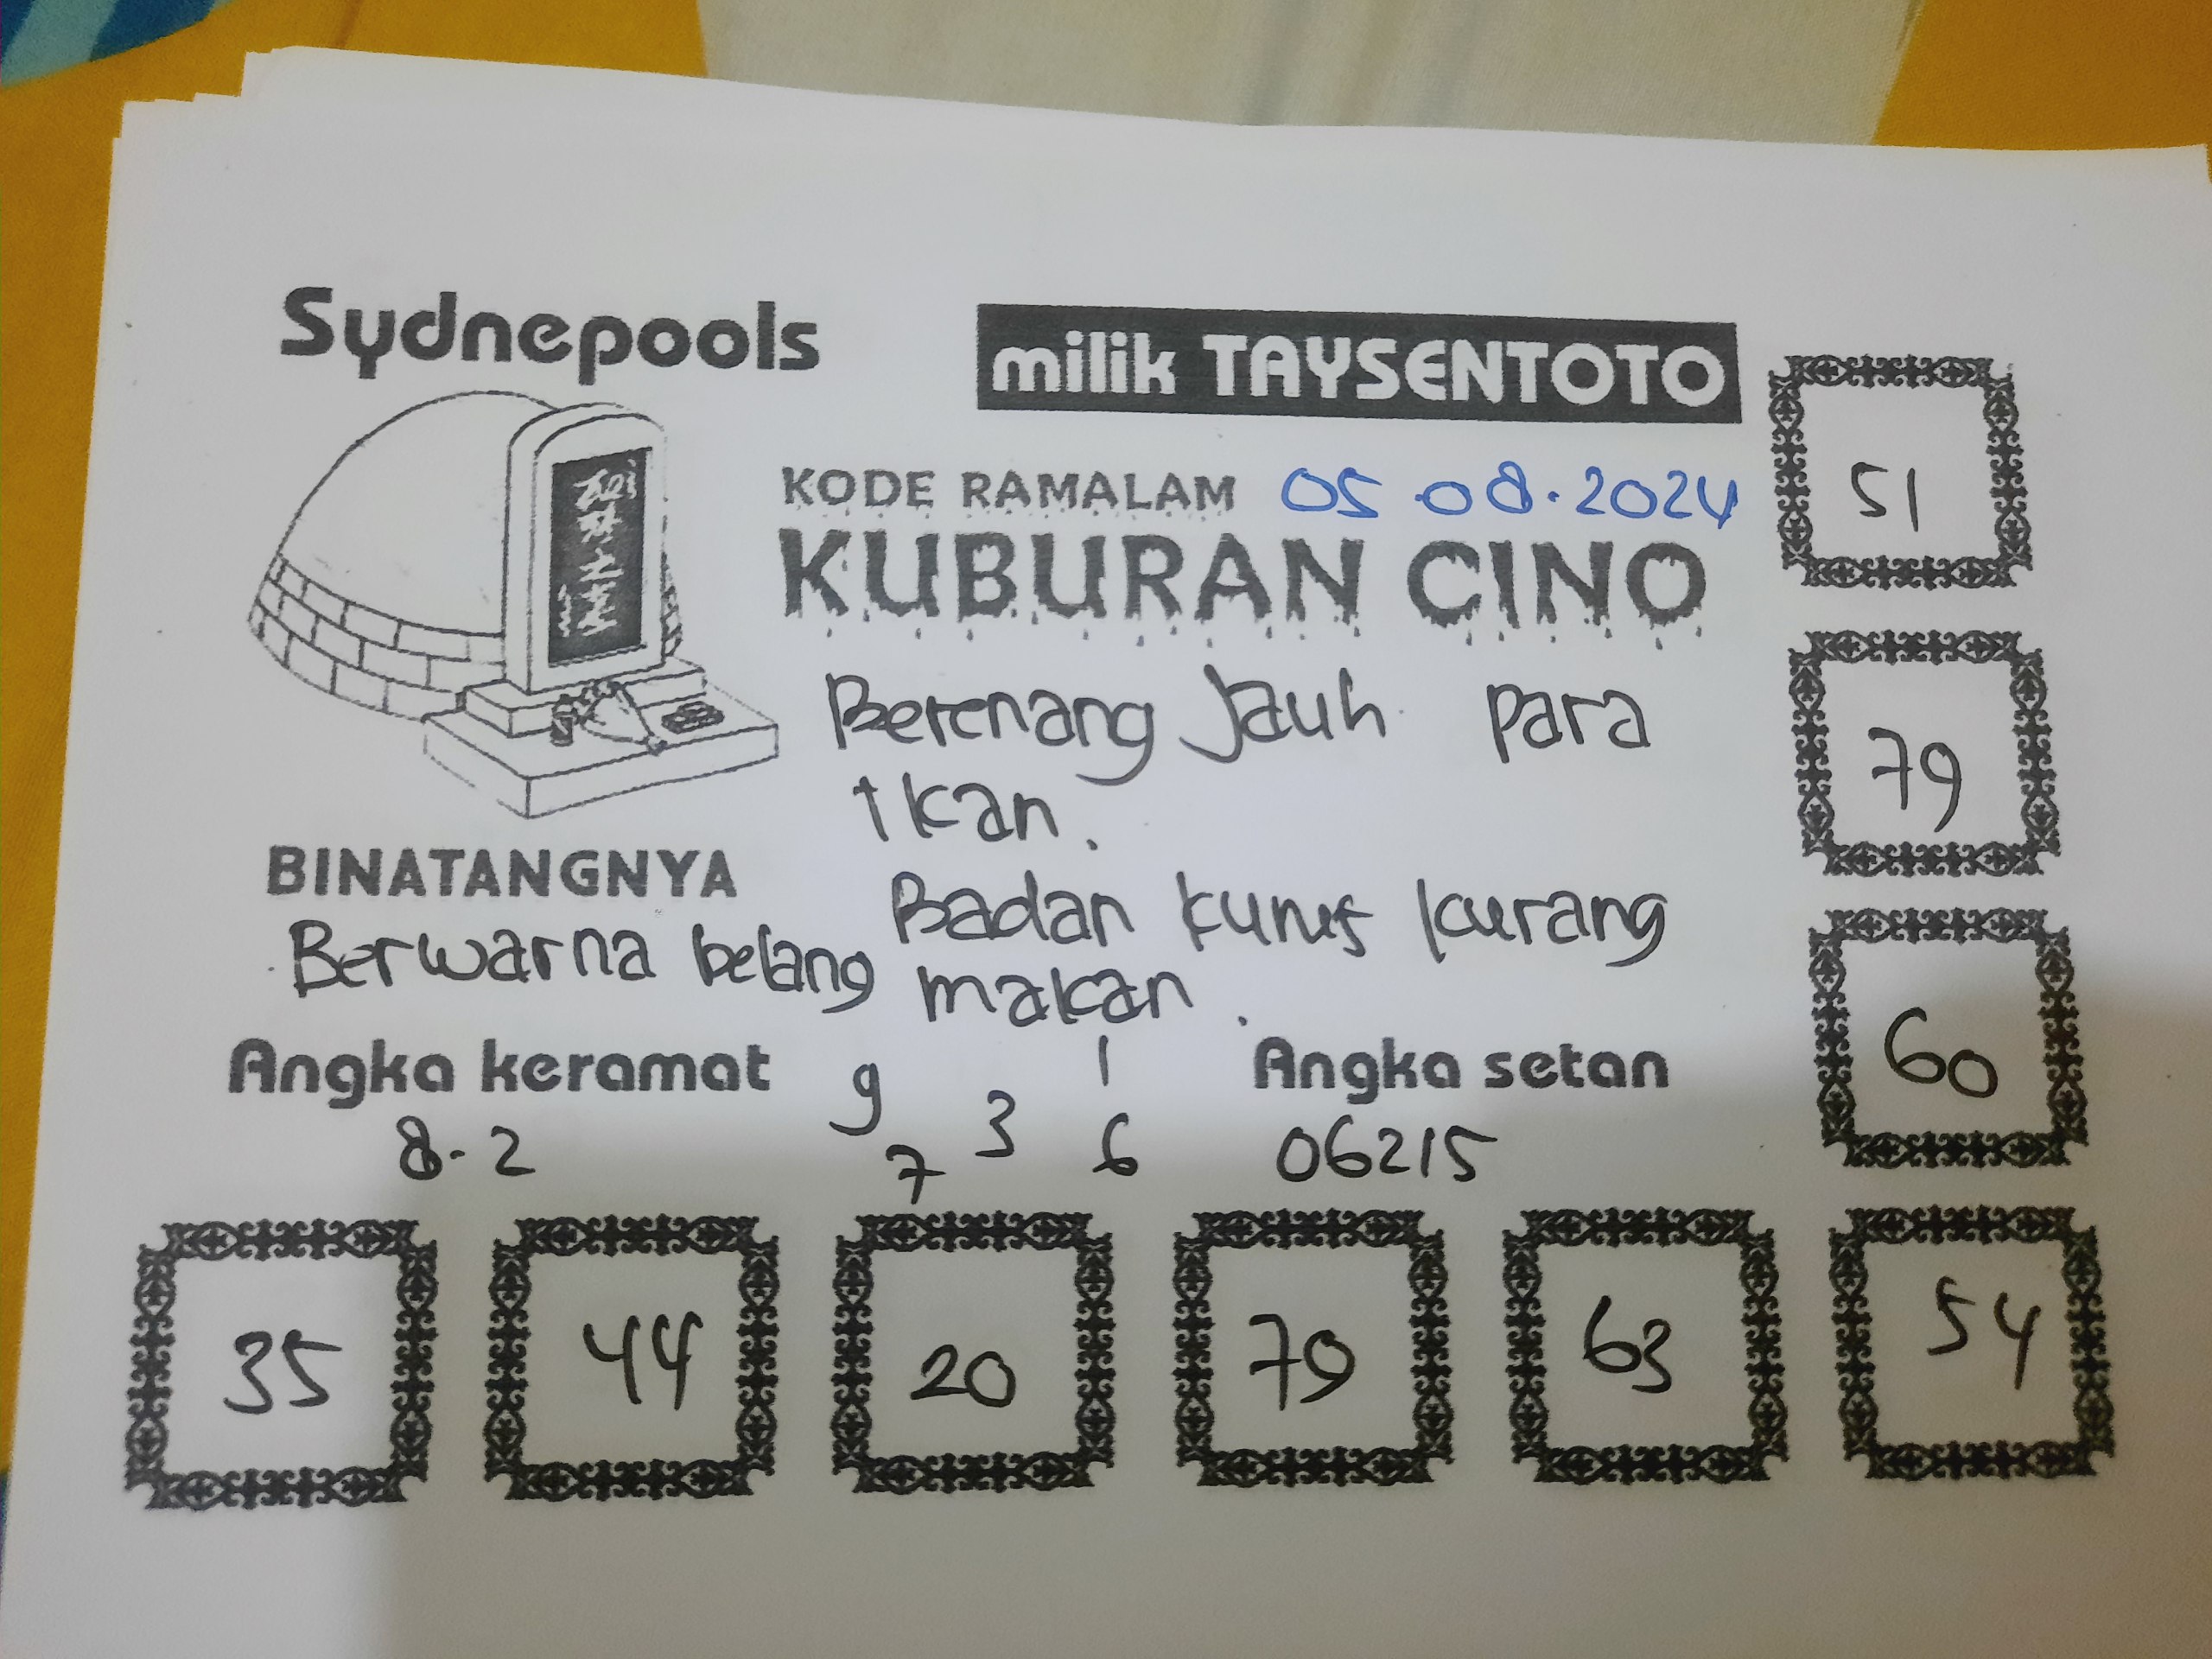 Sydnepools
milik TAYSENTOTO
KODE RAMALAM 05.08.2024
KUBURAN CINO
Berenang Jauh para
ikan.
Badan kurus kurang
makan.
BINATANGNYA
Berwarna belang
Angka keramat
8.2
9 3 1
7 6
Angka setan
06215
51
79
60
35 44 20 79 63 54